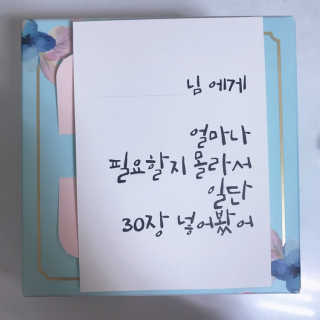 님에게
얼마나
필요할지 몰라서
일단
30장 넣어봤어